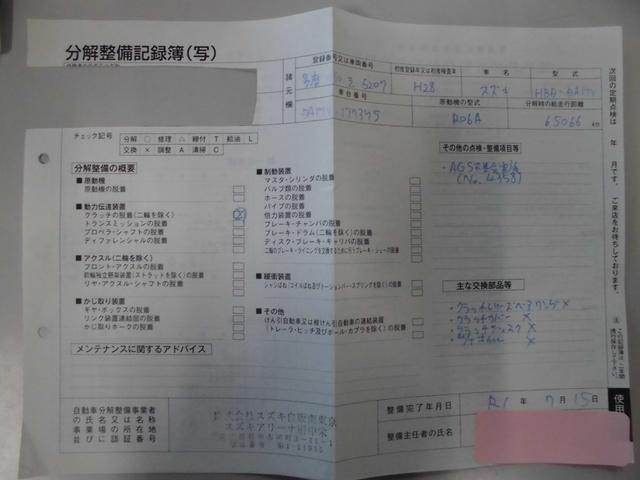 分解整備記録簿(写)
登録番号又は車両番号
初度登録年又は初度検査年
車名
型式
諸元欄
5207
H28
スズキ
車台番号
原動機の型式
分解時の総走行距離
R06A
65066 km
チェック記号
分解 ○ 修理 △ 締付 T 給油 L
交換 × 調整 A 清掃 C
分解整備の概要
■原動機
原動機の脱着
■動力伝達装置
クラッチの脱着(二輪を除く)
トランスミッションの脱着
プロペラ・シャフトの脱着
ディファレンシャルの脱着
■アクスル(二輪を除く)
フロント・アクスルの脱着
前輪独立懸架装置(ストラットを除く)の脱着
リヤ・アクスル・シャフトの脱着
■かじ取り装置
ギヤ・ボックスの脱着
リンク装置連結部の脱着
かじ取りホークの脱着
■制動装置
マスタ・シリンダの脱着
バルブ類の脱着
ホースの脱着
パイプの脱着
倍力装置の脱着
ブレーキ・チャンバの脱着
ブレーキ・ドラム(二輪を除く)の脱着
ディスク・ブレーキ・キャリパの脱着
二輪のブレーキ・ライニングを交換するために行うブレーキ・シューの脱着
■緩衝装置
シャシばね(コイルばね及びトーションバー・スプリングを除く)の脱着
■その他
けん引自動車又は被けん引自動車の連結装置
(トレーラ・ヒッチ及びボール・カプラを除く)の脱着
その他の点検・整備項目等
(No.4358)
主な交換部品等
・クラッチレリーズベアリング×
・クラッチカバー ×
・クラッチディスク ×
メンテナンスに関するアドバイス
自動車分解整備事業者
の氏名又は名称
事業場の所在地
並びに認証番号
株式会社スズキ自販東京
スズキアリーナ府中栄
整備完了年月日
R.1 年 7月15日
整備主任者の氏名
次回の定期点検は 年 月です。ご来店をお待ちしております。